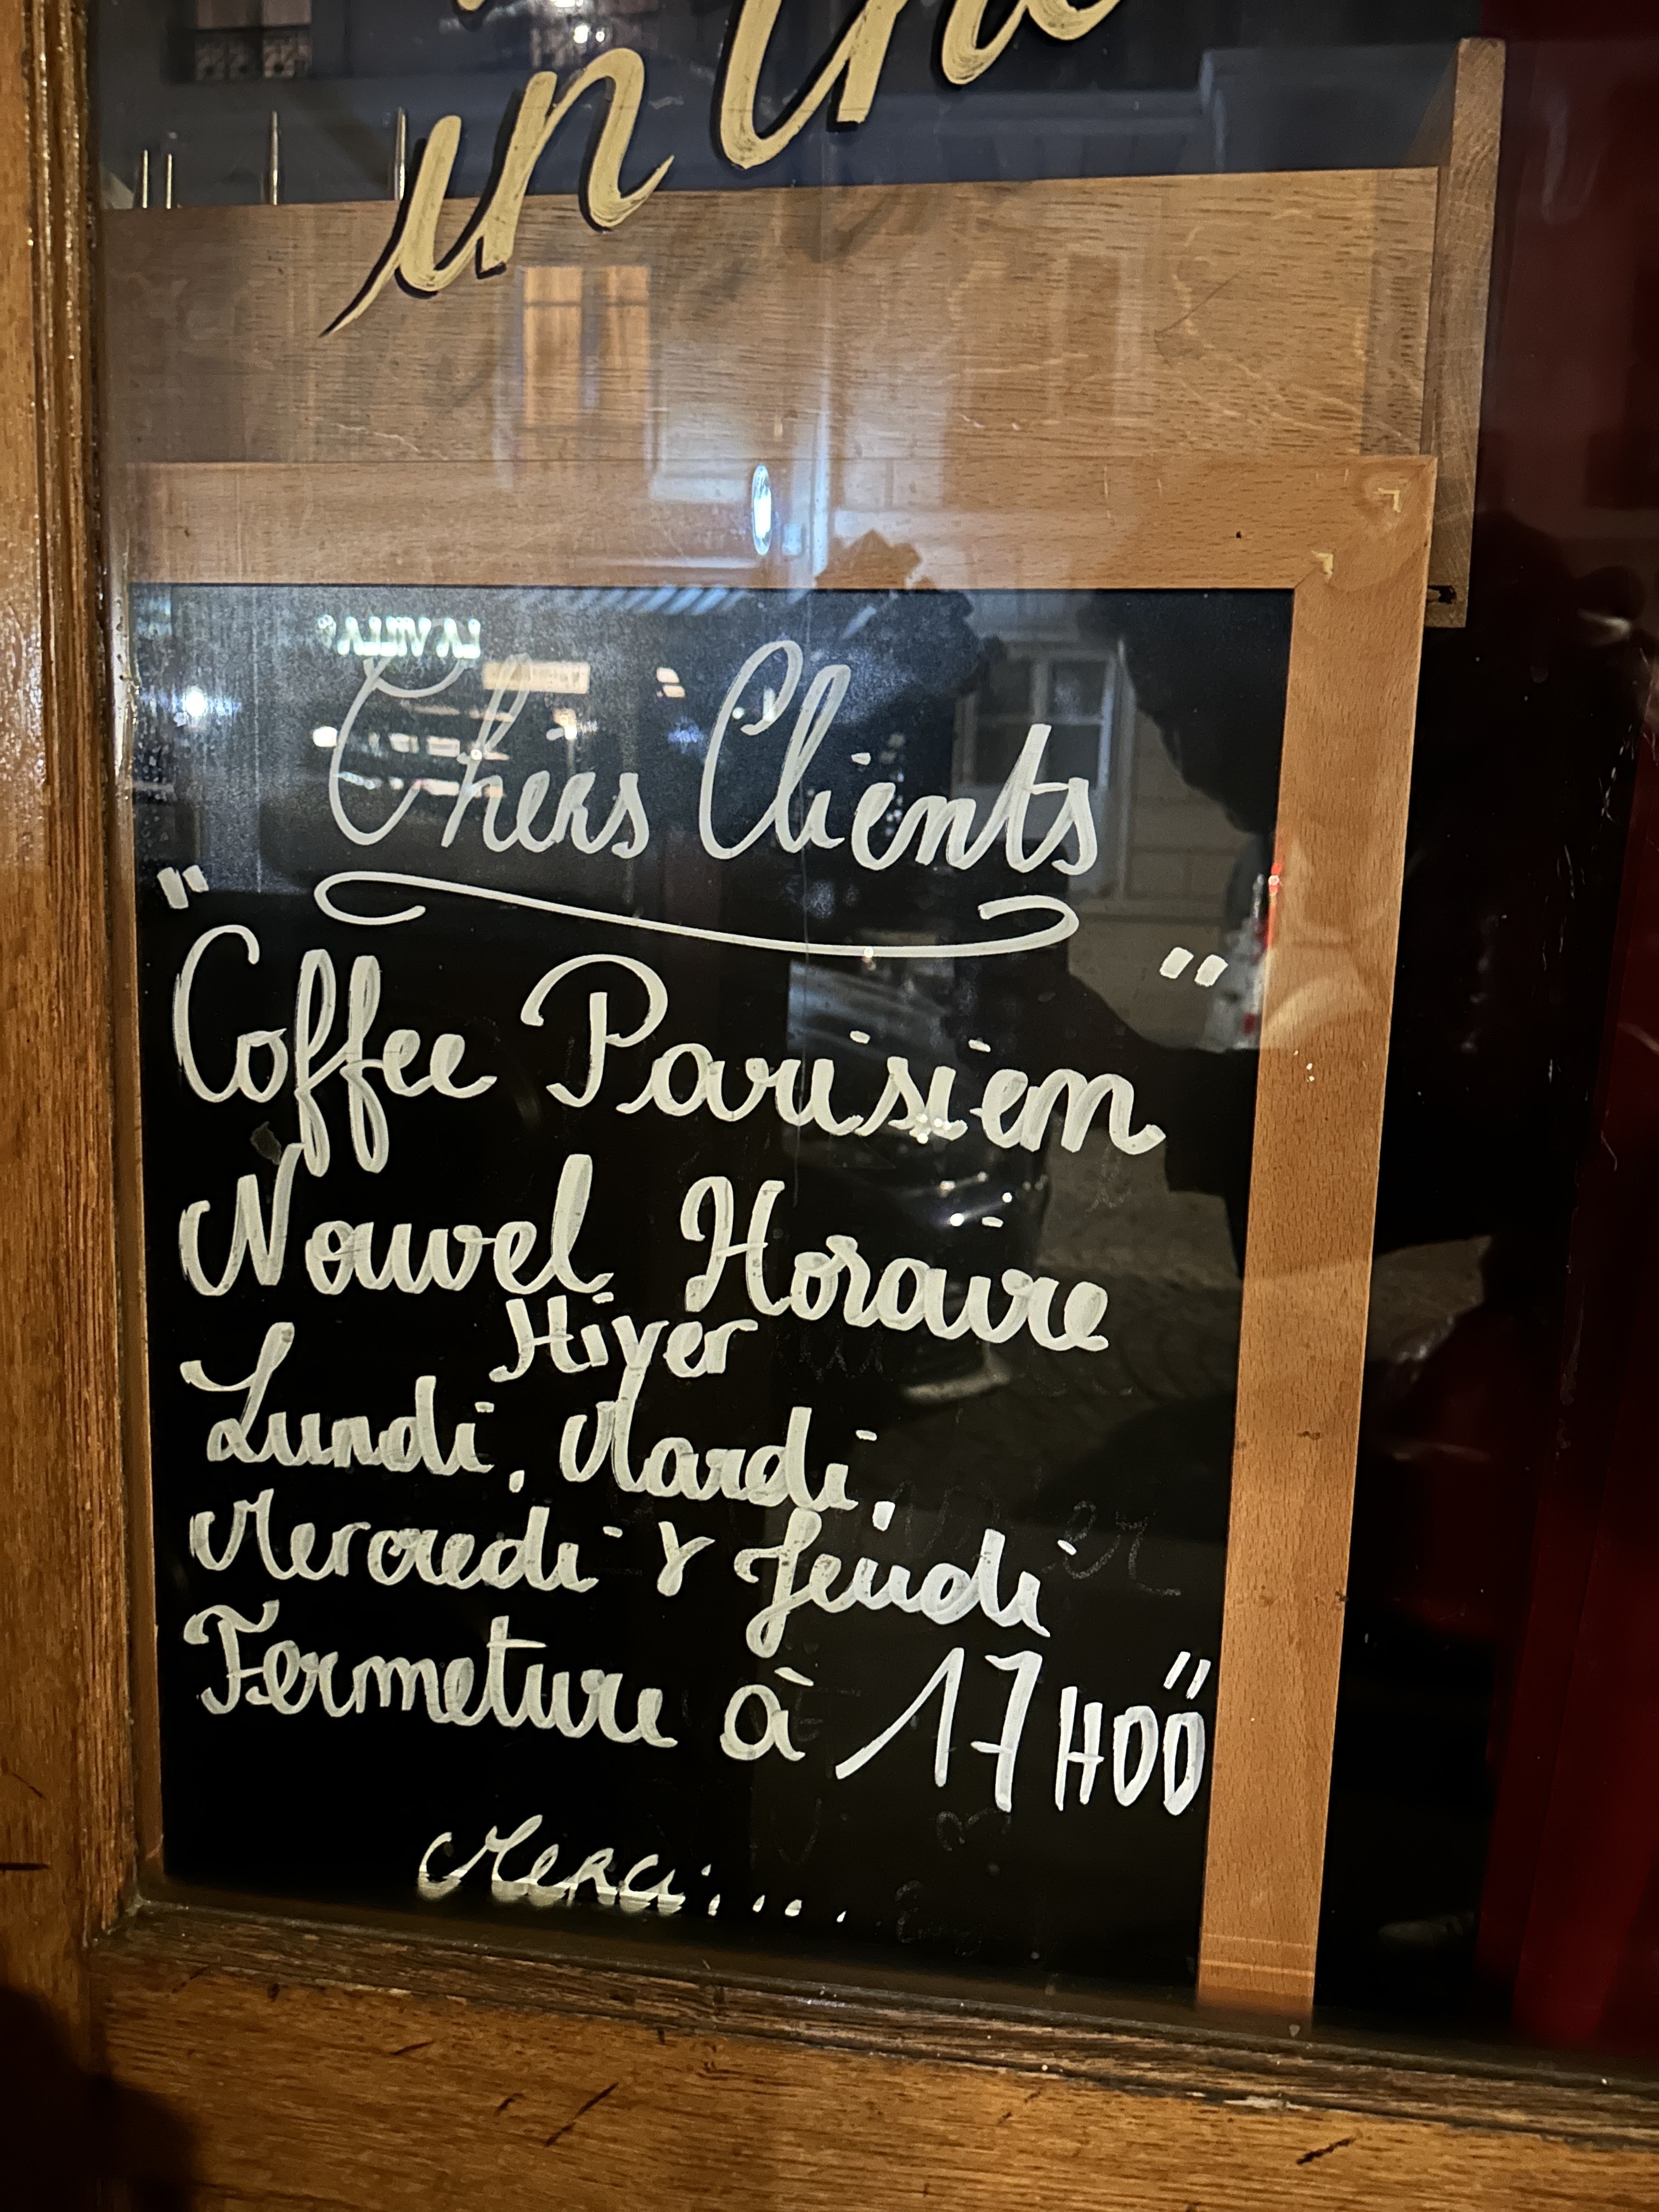 in the
Chers Clients
"Coffee Parisien"
Nouvel Horaire
Hiver
Lundi, Mardi,
Mercredi & Jeudi
Fermeture à 17H00"
Merci....